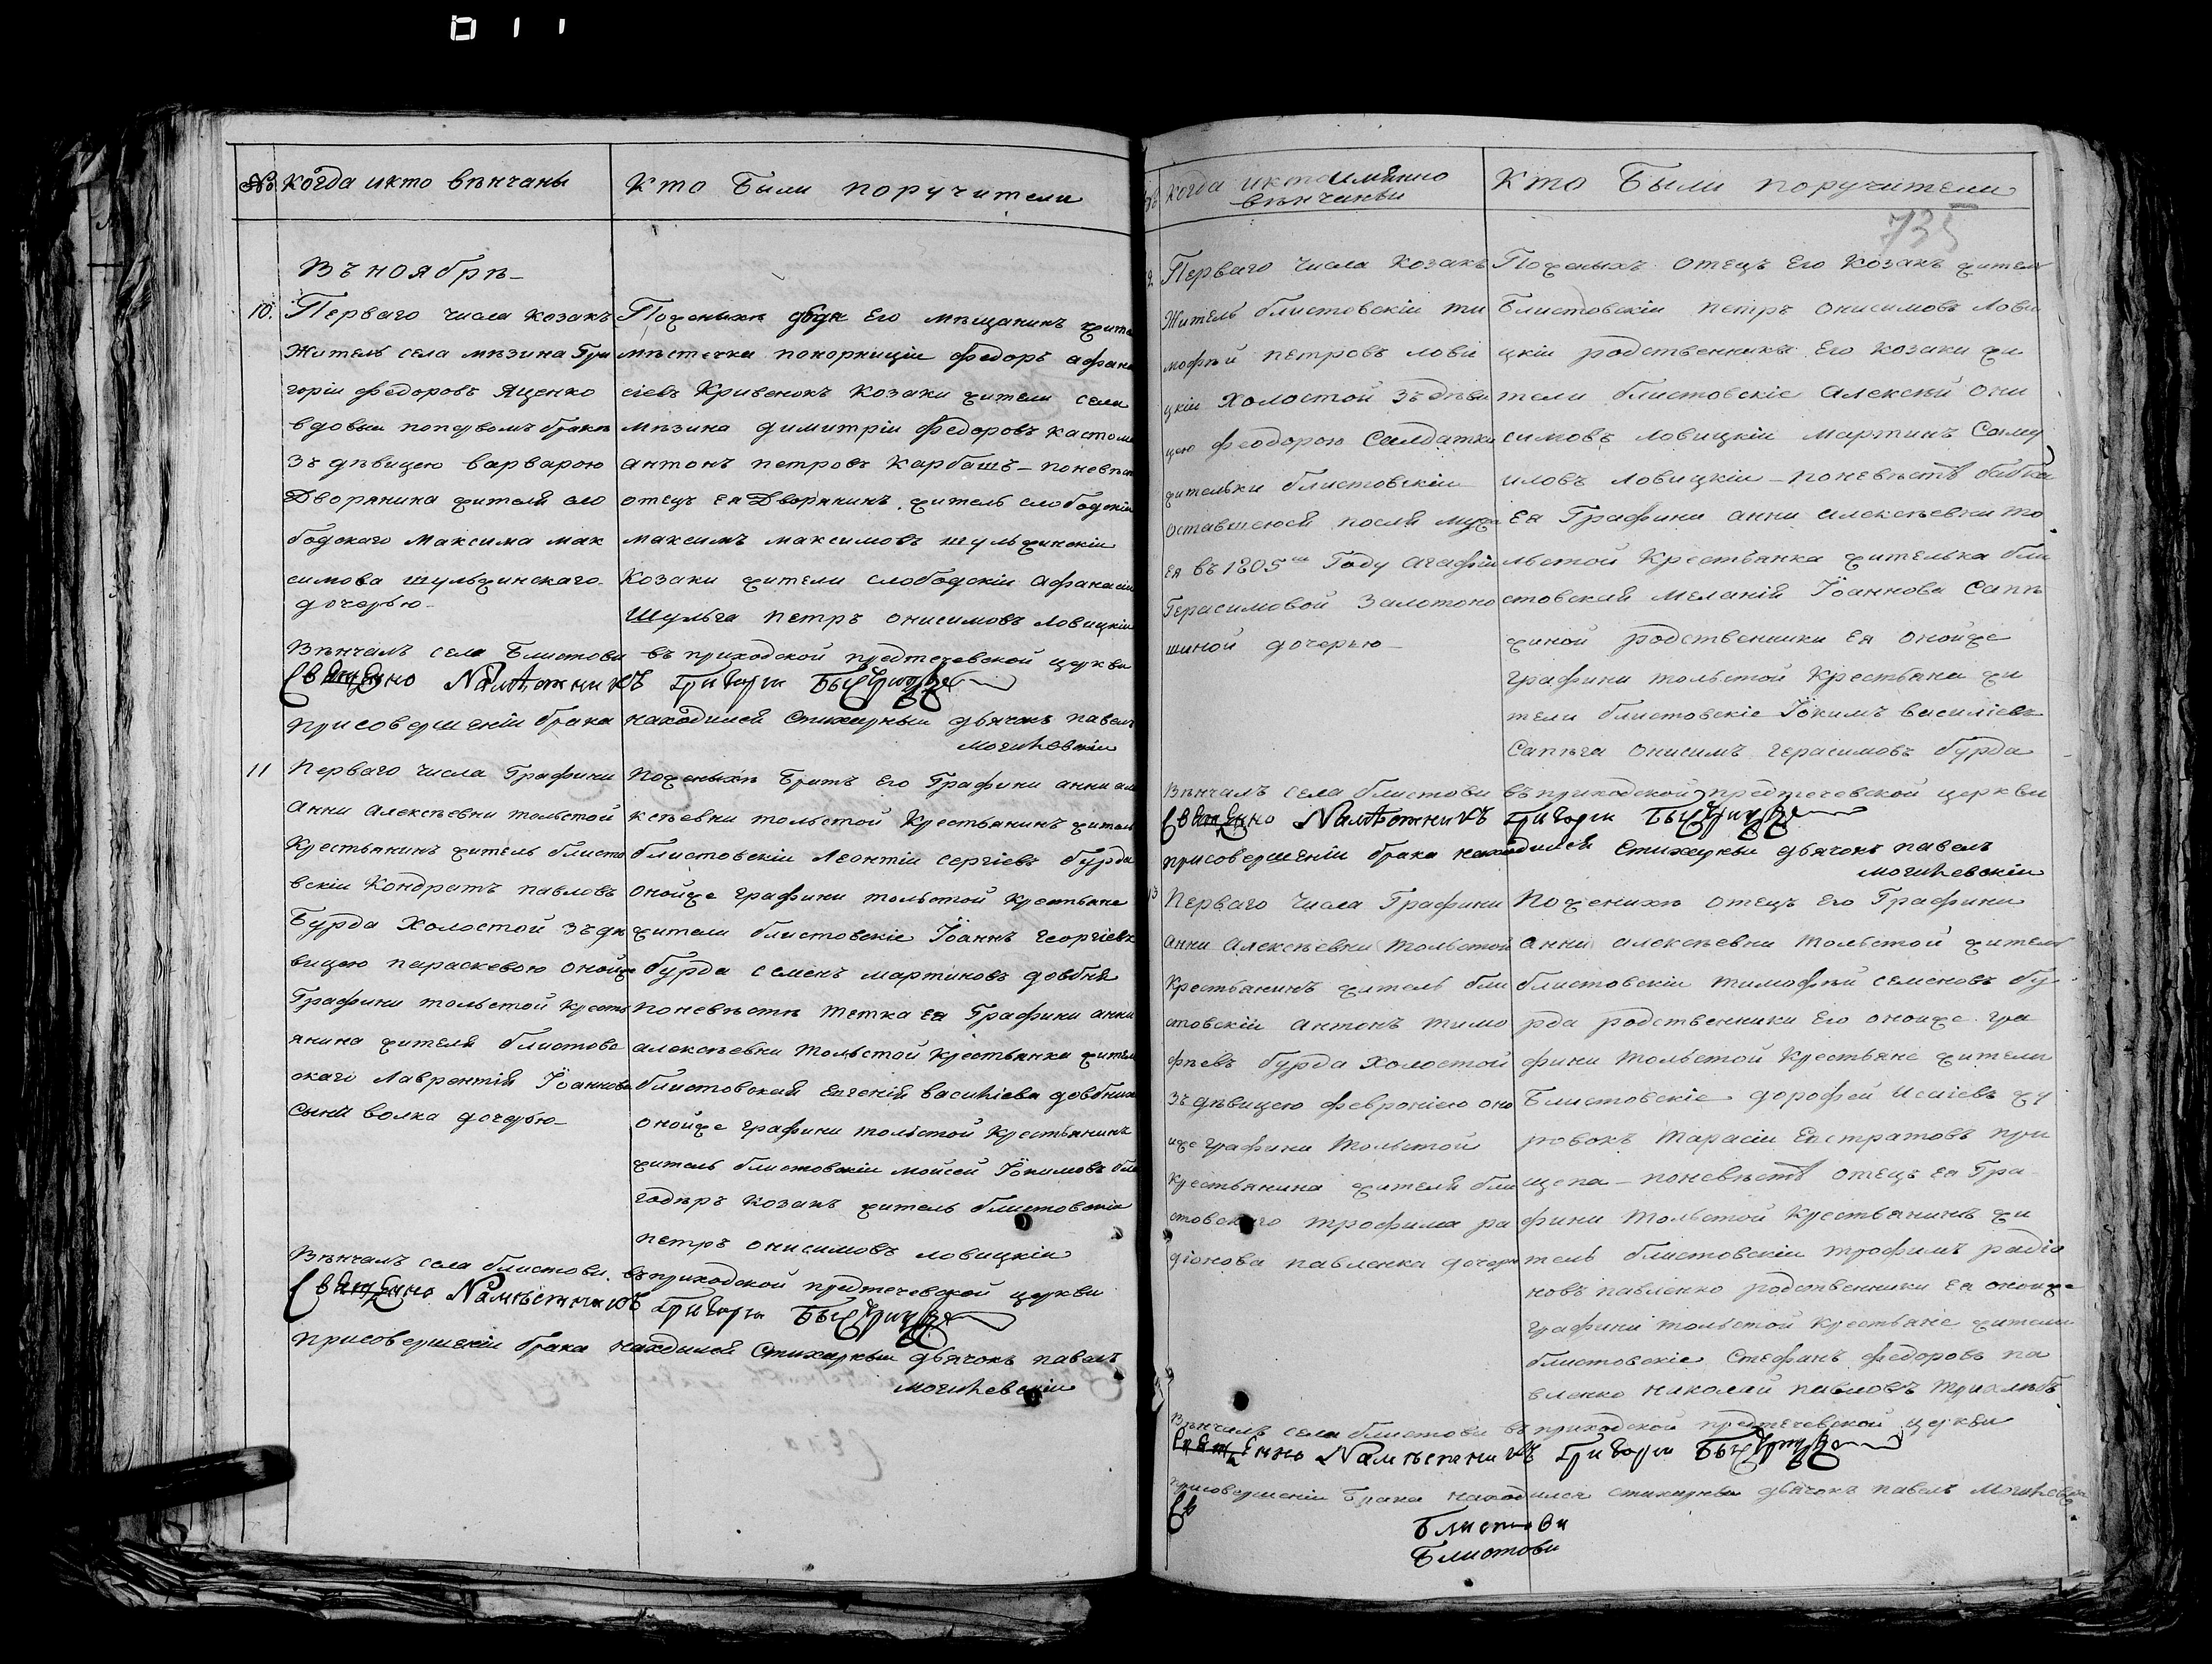 № когда икто вѣнчаны
Кто Были поручители
Въ ноябрѣ
10.
Перваго числа козакъ
Житель села мѣзина Гри
горіи федоровъ Яценко
вдовый попервомъ бракѣ
зъ дѣвицею варварою
Дворянина жителя сло
бодскаго Максима мак
симова шульжинскаго
дочерью
Поженихѣ дядя Его мѣщанинъ жите
мѣстечка понорниціи федоръ афана
сіевъ Кривенокъ козаки жители села
мѣзина димитріи федоровъ
антонъ петровъ Карбашъ – поневѣст
отецъ ея Дворянинъ житель слободскіи
максимъ максимовъ шульжинскіи
Козаки жители слободскіи афанасіи
Шульга петръ онисимовъ ловицкіи
Вѣнчалъ села Блистови въ приходской предтечевской церкви
Намѣстникъ Григоріи
присовершеніи брака находился Стихарныи дьячокъ павелъ
Могилевскіи
11
Перваго числа Графини
Анни Алексѣевни толстой
Крестьянинъ житель блисто
вскіи Кондратъ павловъ
Бурда Холостой зъ дѣ
вицею параскевою онойже
Графини толстой Кресть
янина жителя блистове
скаго Лаврентія Іоаннова
Сына волка дочерью
поженихѣ Братъ Его Графини анни але
ксѣевни толстой Крестьянинъ житель
блистовскіи Леонтіи сергіевъ бурда
онойже графини толстой Крестьяне
жители блистовскіе Іоаннъ Георгіевъ
бурда семенъ мартиновъ довбня
поневѣстѣ тетка ея Графини анни
алексѣевни толстой Крестьянка жител
блистовская Евгенія василіева
онойже графини толстой Крестьянинъ
житель блистовскіи моисей Іокимовъ
козакъ житель блистовскіи
петръ онисимовъ ловицкіи
Вѣнчалъ села блистови въ приходской предтечевской церкви
Намѣстникъ Григоріи
присовершеніи брака находился Стихарныи дьячокъ павелъ
Могилевскіи
когда икто имянно
вѣнчаныи
Кто Были поручители
735
Перваго числа козакъ
Житель блистовскіи ти
мофѣй петровъ лови
цкіи Холостой зъ дѣви
цею феодорою Салдатки
жительки блистовскіи
оставшеюся послѣ мужа
ея въ 1805 Году агафіи
Герасимовой Золотоно
шиной дочерью
Поженихѣ отецъ Его Козакъ жител
Блистовскіи петръ онисимовъ лови
цкіи родственники Его козаки жи
тели блистовскіе алексѣй они
симовъ ловицкіи мартинъ Саму
иловъ ловицкіи – поневѣстѣ бабка
Ея Графини анни алексѣевни то
лстой Крестьянка жителька бли
стовская меланія Іоаннова Сапѣ
жиной родственники ея онойже
Графини толстой Крестьяни жи
тели блистовскіе Іокимъ василіевъ
Сапѣга онисимъ герасимовъ бурда
Вѣнчалъ села блистови въ приходской предтечевской церкви
Намѣстникъ Григоріи
присовершеніи брака находился Стихарныи дьячокъ павелъ
могилевскіи
13
Перваго числа Графини
анни алексѣевни толстой
Крестьянинъ житель бли
стовскіи антонъ тимо
фѣевъ бурда Холостой
зъ дѣвицею февроніею оно
иже графини толстой
Крестьянина жителя бли
стовскаго трофима ра
діонова павленка дочерю
Поженихѣ отецъ Его Графини
анни алексѣевни толстой жител
блистовскіи тимофѣи семеновъ бу
рда родственники Его оноиже гра
фини толстой Крестьяне жители
Блистовскіе дорофей Исаіевъ жу
ровокъ тарасіи Евстратовъ при
щепа – поневѣстѣ отецъ ея Гра
фини толстой Крестьянинъ жи
тель блистовскіи трофимъ радіо
новъ павленко родственники ея оноиже
графини толстой Крестьяне жители
блистовскіе Стефанъ федоровъ па
вленко николай павловъ трихлѣбъ
Вѣнчалъ села блистови въ приходской предтечевской церкви
Намѣстникъ Григоріи
присовершеніи брака находился стихарныи дьячокъ павелъ
Блистови
Блистови